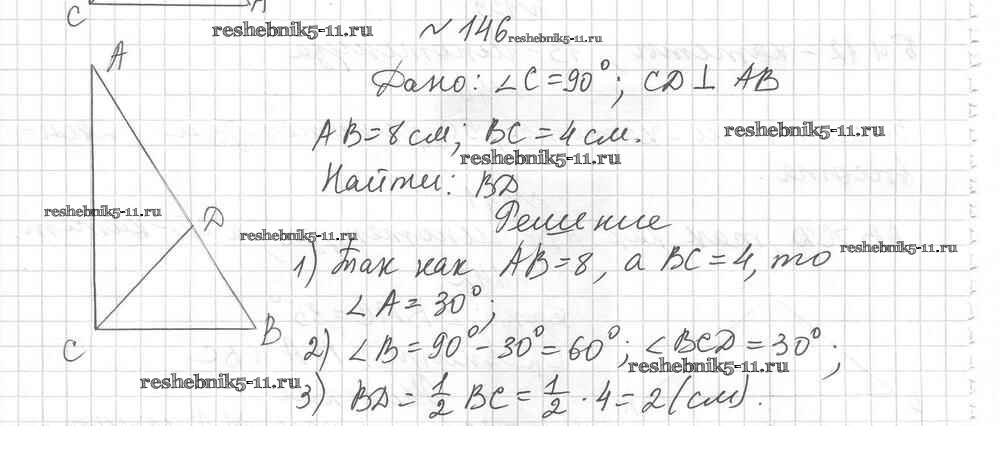 C A
reshebnik5-11.ru
№ 146 reshebnik5-11.ru
A
Дано: ∠C = 90°; CD ⊥ AB
AB = 8 см; BC = 4 см.
reshebnik5-11.ru
reshebnik5-11.ru
Найти: BD
reshebnik5-11.ru
D
Решение
reshebnik5-11.ru
reshebnik5-11.ru
1) Так как AB = 8, а BC = 4, то
∠A = 30°;
C B
2) ∠B = 90° - 30° = 60°; ∠BCD = 30°;
reshebnik5-11.ru
reshebnik5-11.ru
3) BD = 1/2 BC = 1/2 · 4 = 2 (см).